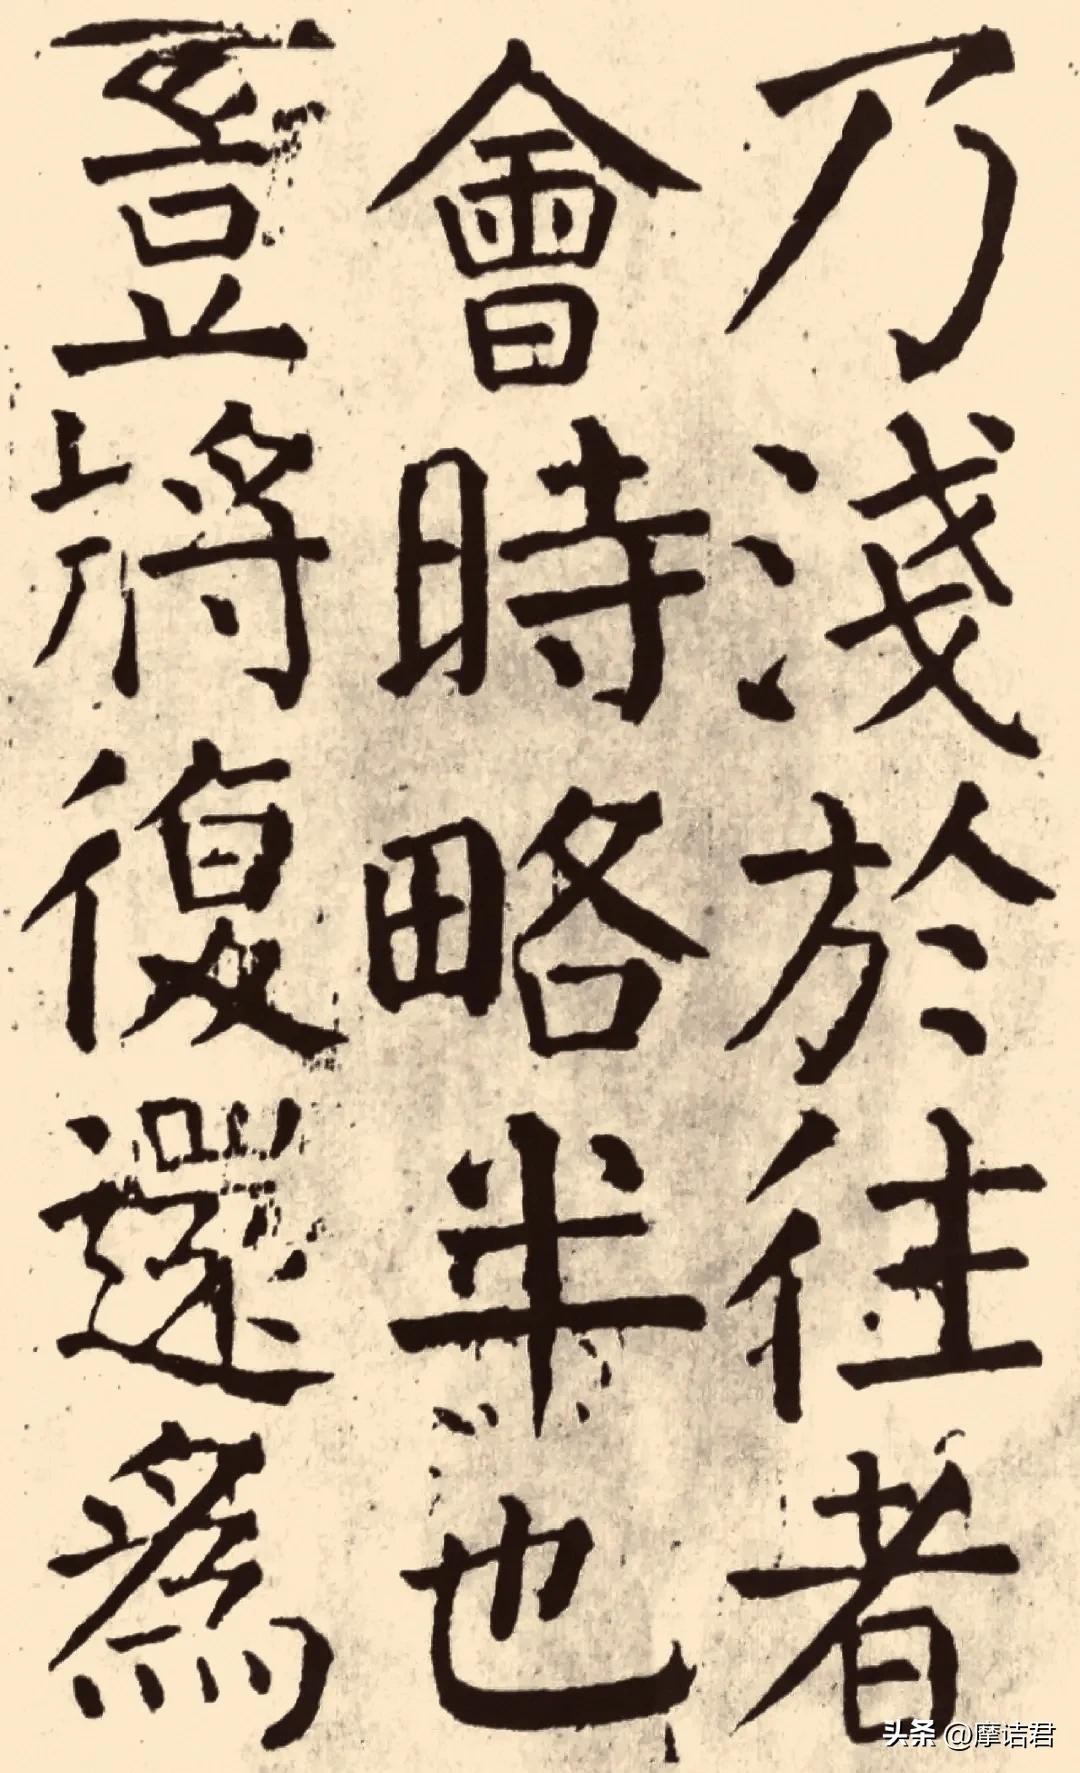 乃淺於往者
會時略半也
豈將復還為
頭条 @摩诘君